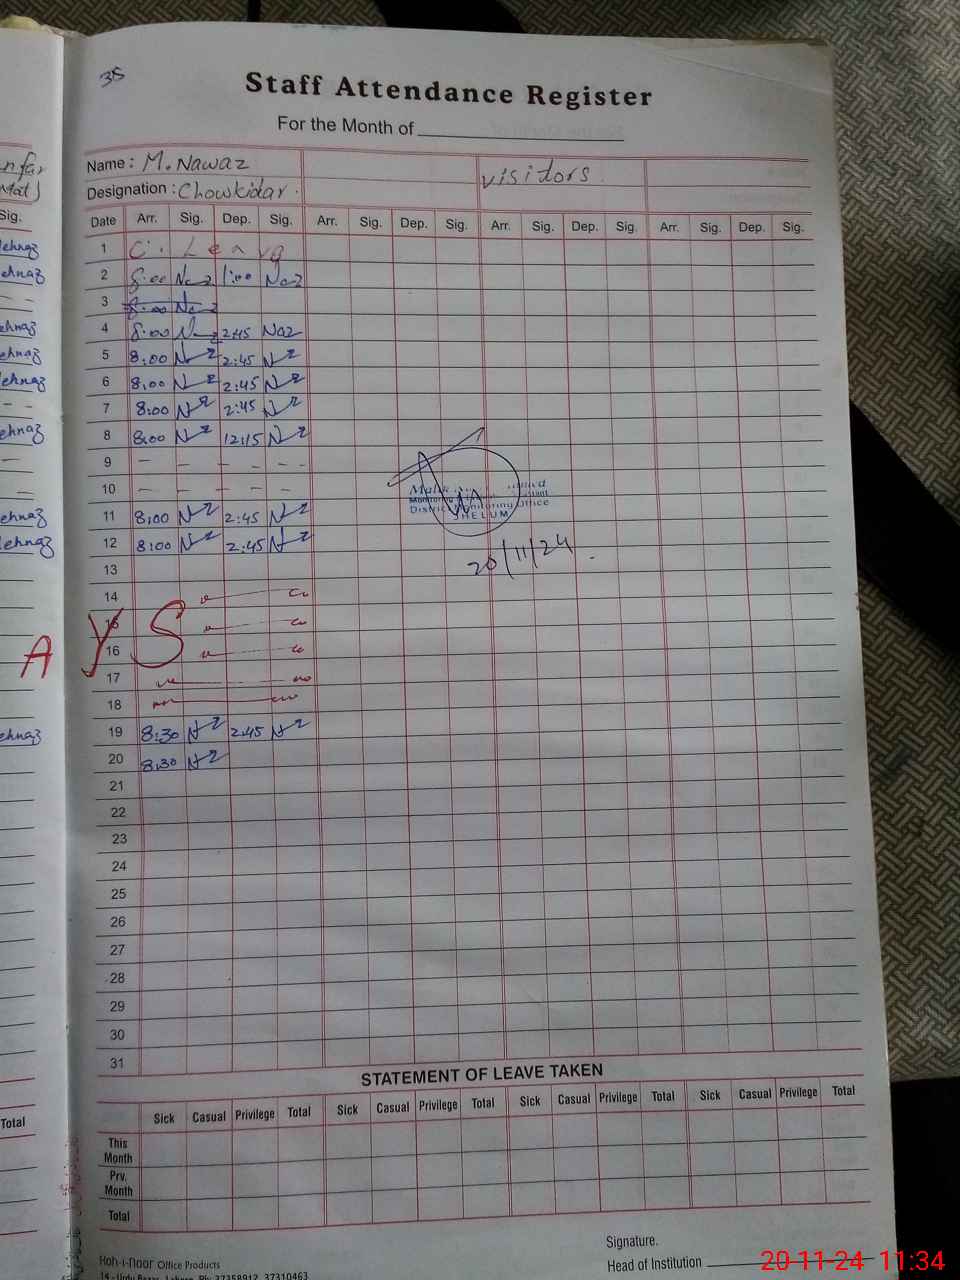 35
Staff Attendance Register
For the Month of
Name : M. Nawaz
visidors
Designation : Chowkidar.
Date Arr. Sig. Dep. Sig. Arr. Sig. Dep. Sig. Arr. Sig. Dep. Sig. Arr. Sig. Dep. Sig.
Sig.
1 C. Leave
2 8:00 Naz 1:00 Naz
3 8:00 Naz
4 8:00 2:45 Naz
5 8:00 2:45
6 8:00 2:45
7 8:00 2:45
8 8:00 12:15
9 - - - - - -
10 - - - - -
District Monitoring Office
JHELUM
11 8:00 2:45
12 8:00 2:45
20/11/24
13
14
15
A Y S
16
17
18
19 8:30 2:45
20 8:30
21
22
23
24
25
26
27
28
29
30
31
STATEMENT OF LEAVE TAKEN
Total
Sick Casual Privilege Total Sick Casual Privilege Total Sick Casual Privilege Total Sick Casual Privilege Total
This Month
Prv. Month
Total
Signature.
Head of Institution
Hoh-i-Noor Office Products
14 - Urdu Bazar, Lahore. Ph: 37358912, 37310463
20-11-24 11:34